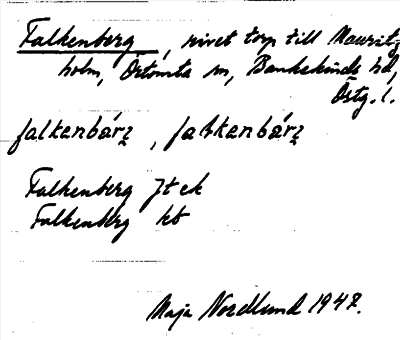 Falkenberg, rivet torp till Mauritz
holm, Örtomta sn, Bankekinds hd,
Östg. l.
falkenbárʒ, falkenbárʒ
Falkenberg Jt ek
Falkenberg kb
Maja Nordlund 1947.